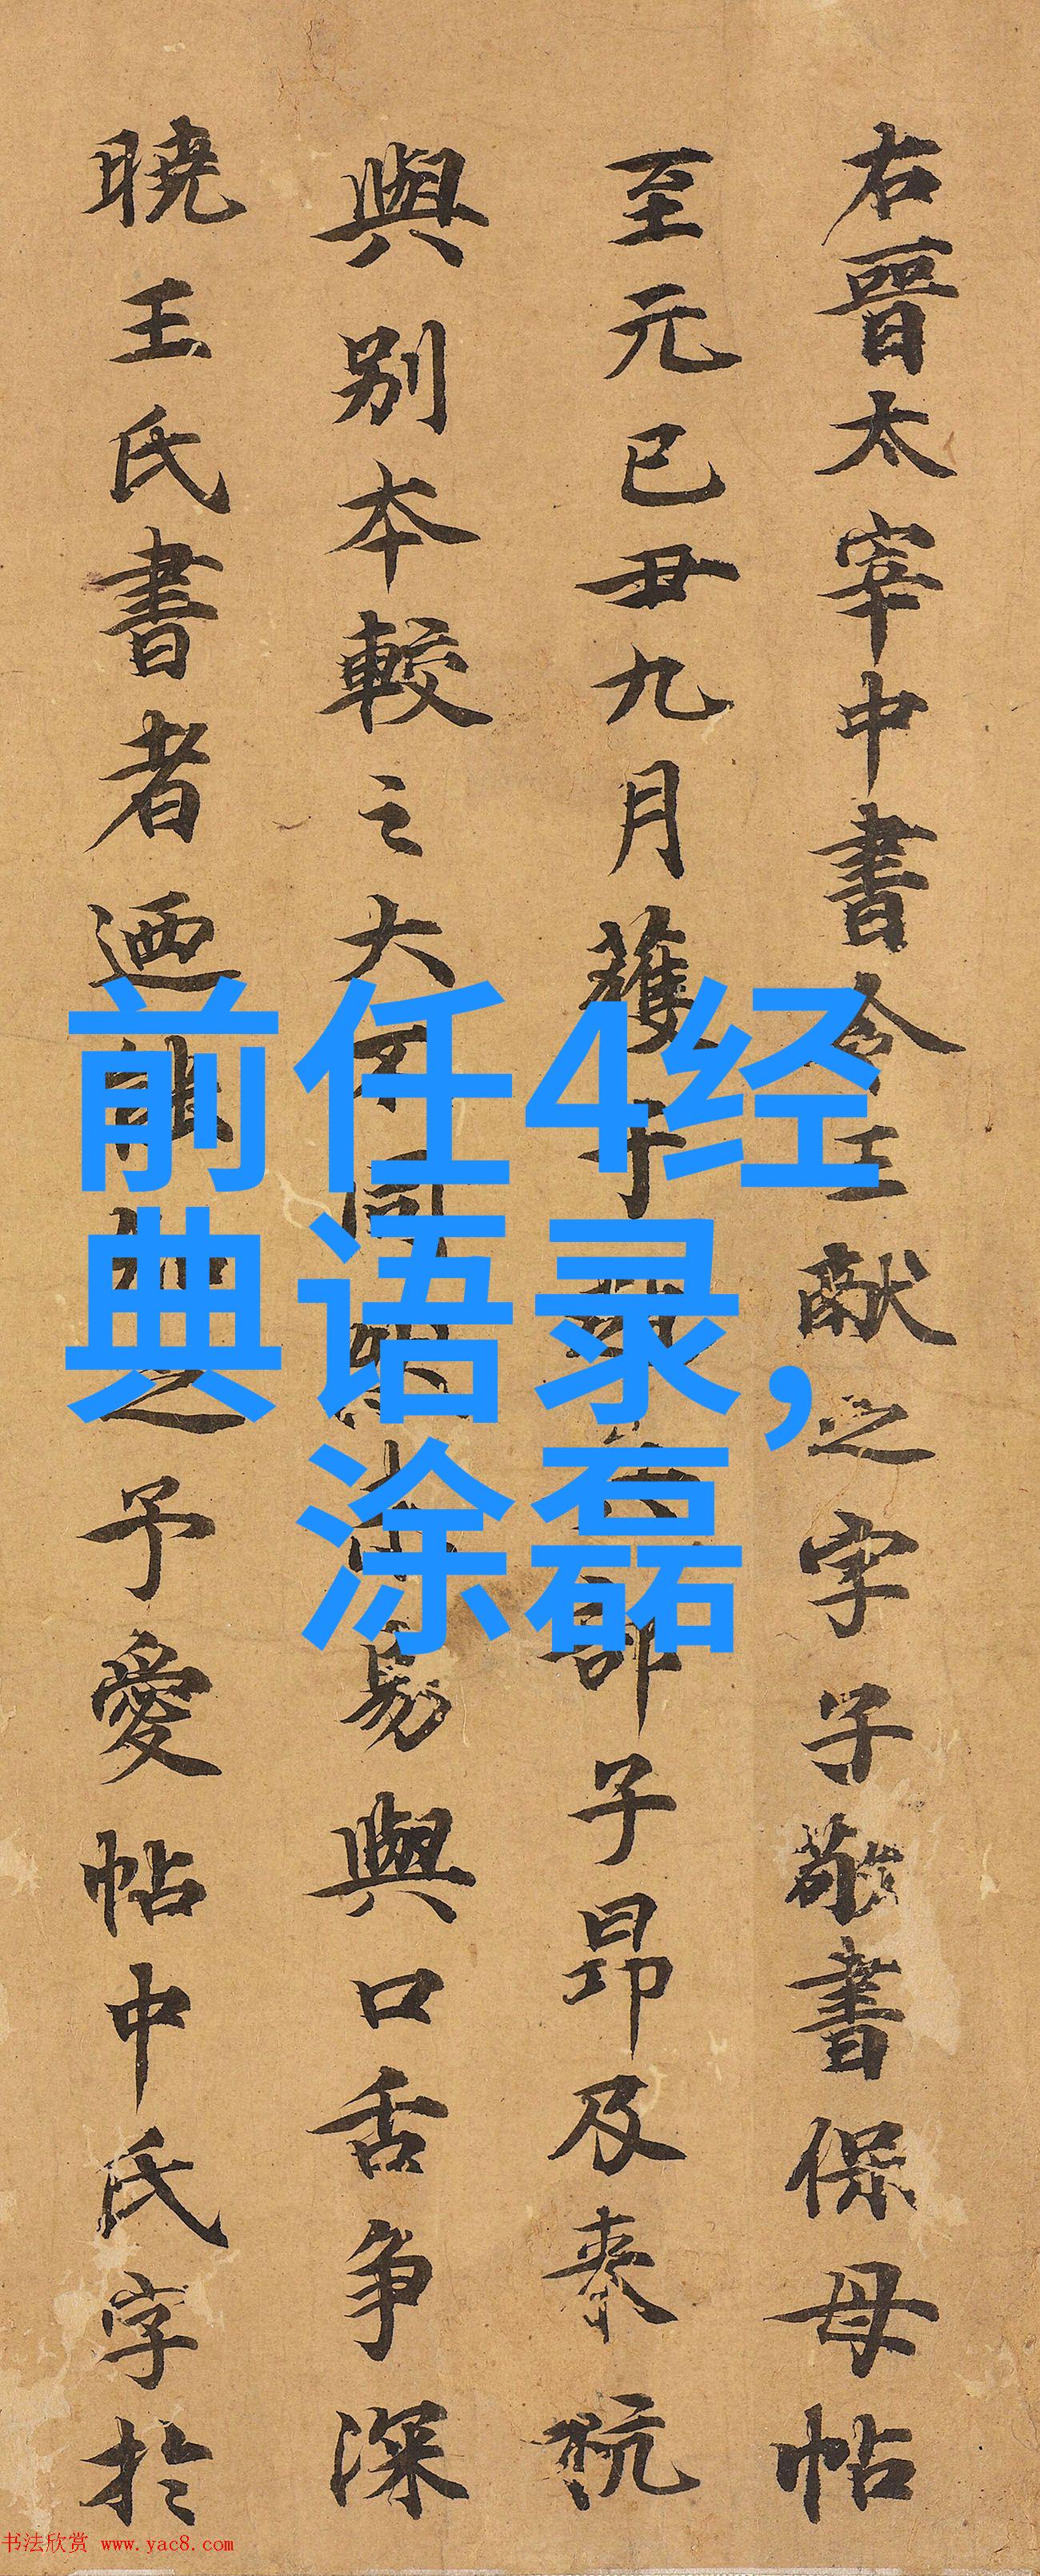 右晉太宰中書令王献之字子敬書保母帖
至元已丑九月獲于部子昂及
與别本較之大不同易與口舌争深
曉王氏書者迺之予愛帖中氏字於
前任4经
典语录，
涂磊
书法欣赏 www.yac8.com